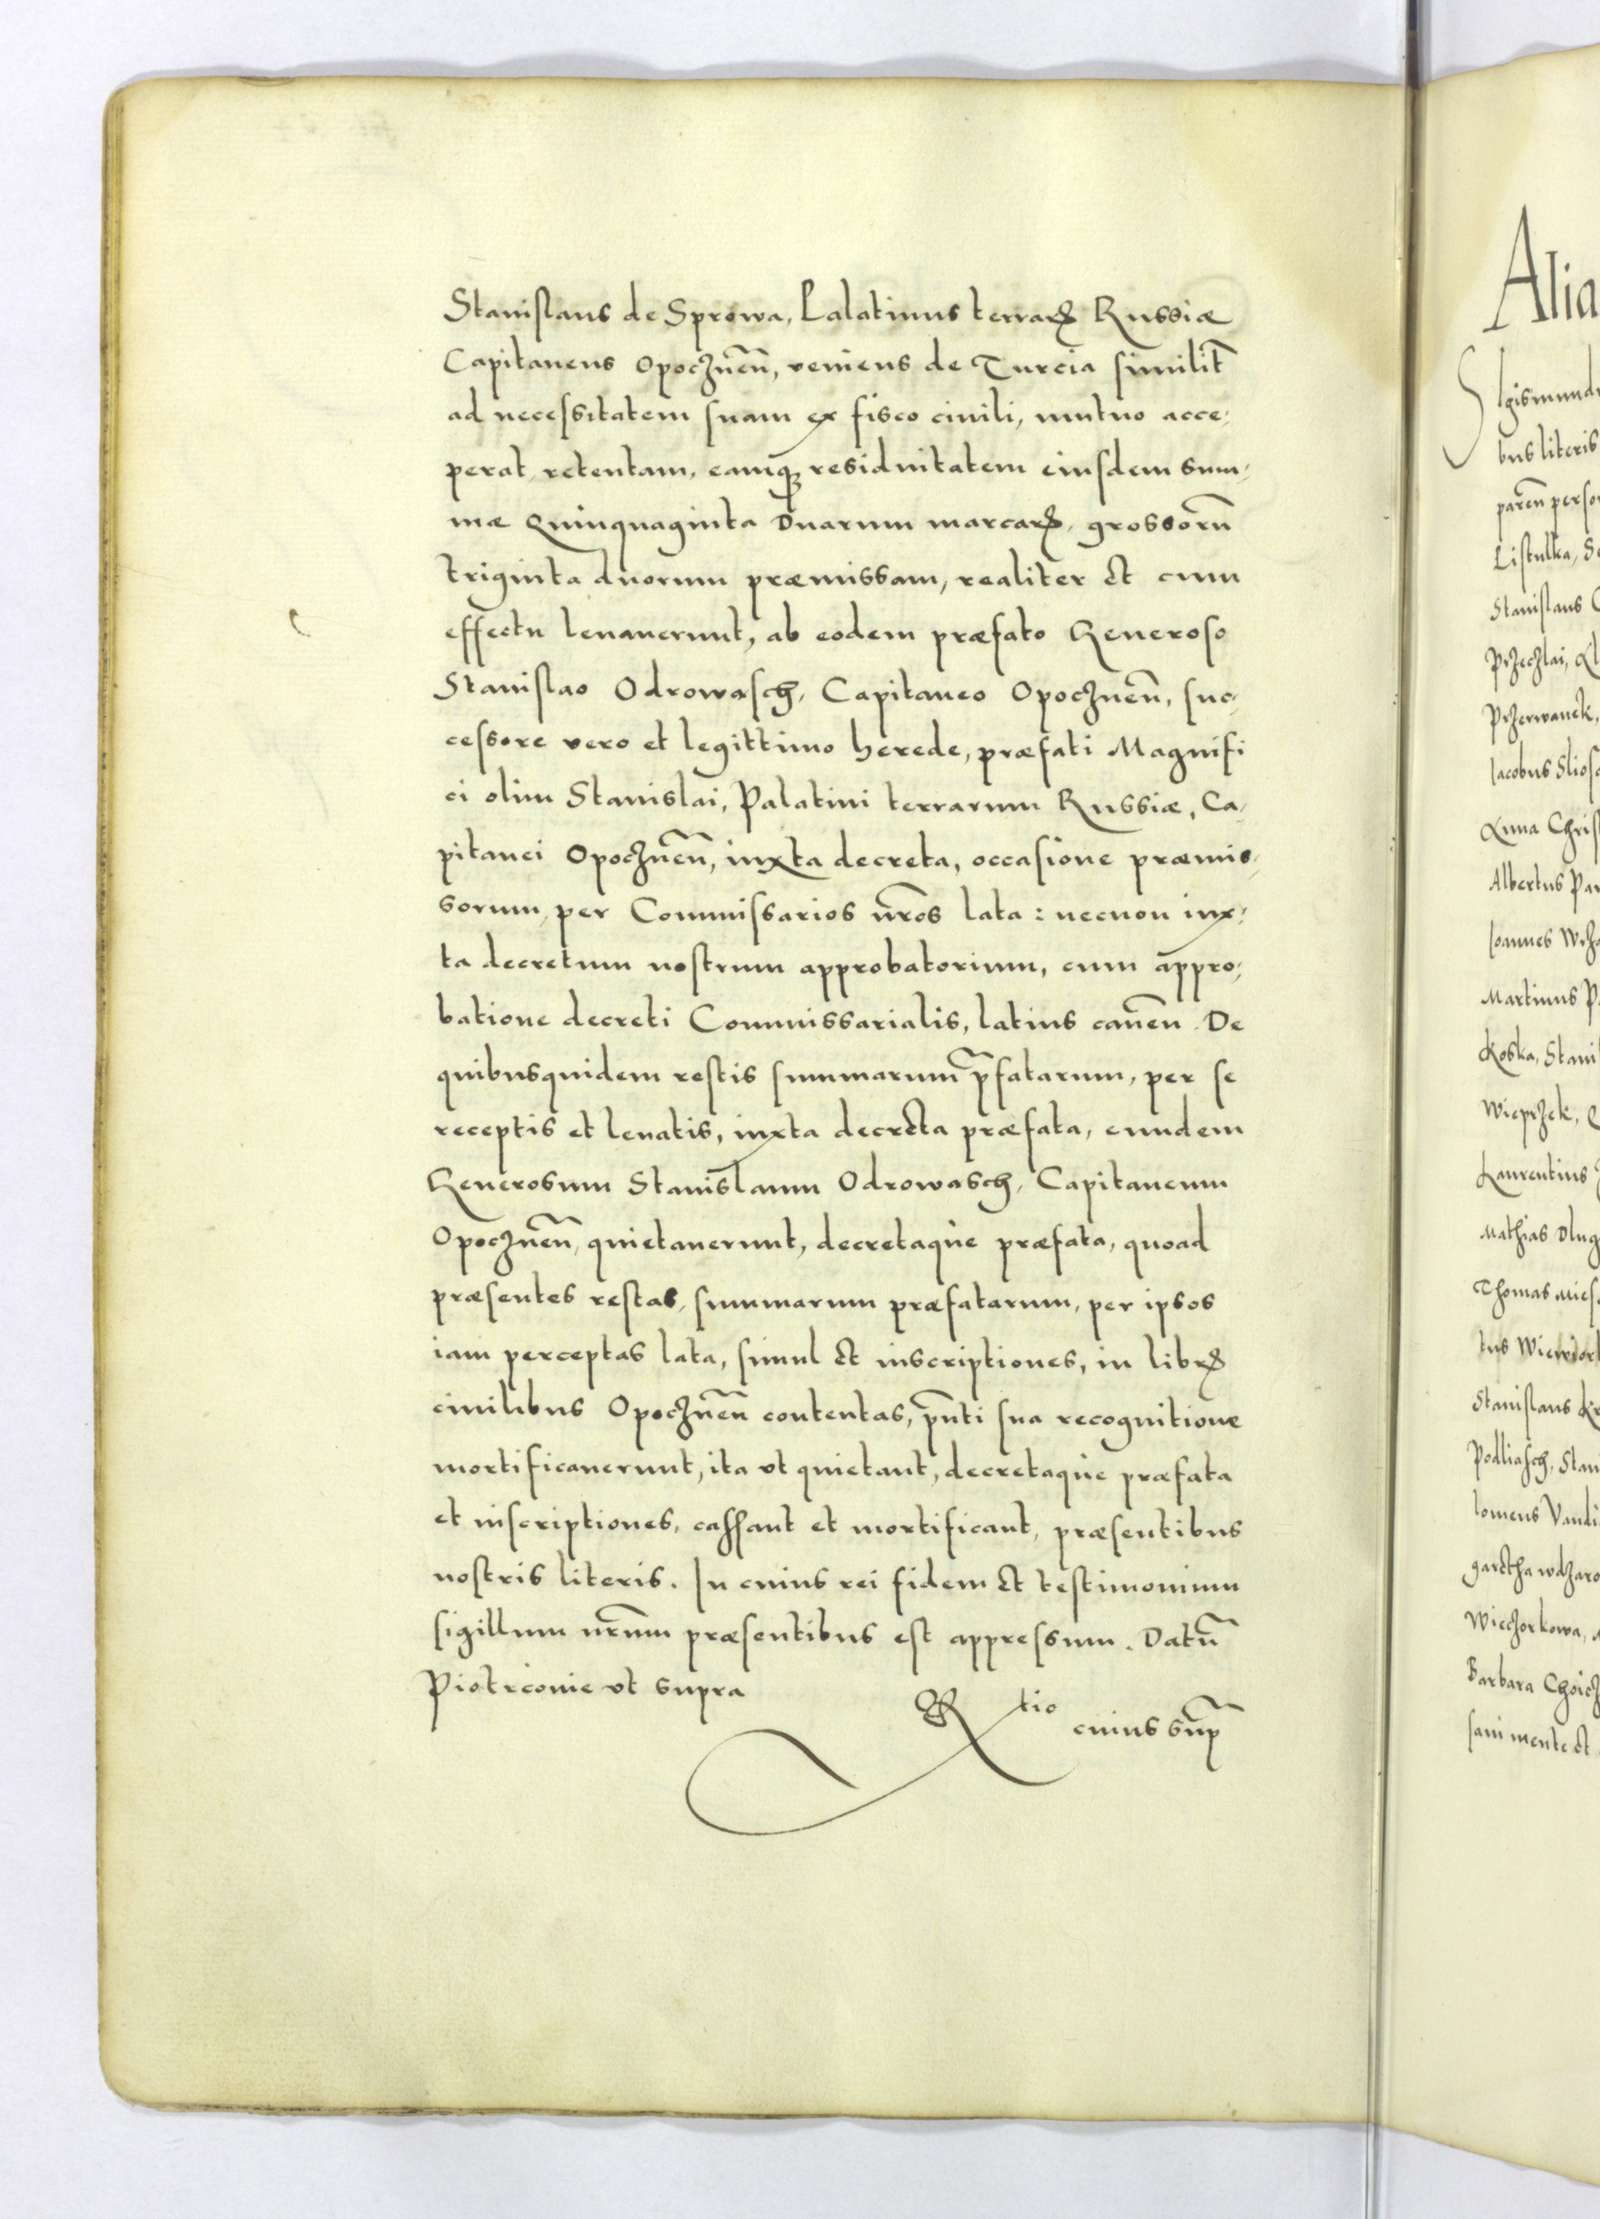 Stanislaus de Sprowa, Palatinus terrarꝝ Russiæ
Capitaneus Opocznēn̄, veniens de Turcia similit̄
ad necessitatem suam ex fisco ciuili, mutuo acce-
perat, retentam, eamqꝫ residuitatem eiusdem sum-
mæ Quinquaginta Duarum marcarꝝ, grossorū
triginta duorum præmissam, realiter et cum
effectu leuauerunt, ab eodem præfato Generoso
Stanislao Odrowasch, Capitaneo Opocznēn̄, suc-
cessore vero et legittimo herede, præfati Magnifi
ci olim Stanislai, Palatini terrarum Russiæ, Ca-
pitanei Opocznēn̄, iuxta decreta, occasione præmis-
sorum, per Commissarios nr̄os lata: necnon iux-
ta decretum nostrum approbatorium, cum appro-
batione decreti Commissarialis, latius canēn̄. De
quibusquidem restis summarum p̄fatarum, per se
receptis et leuatis, iuxta decreta præfata, eundem
Generosum Stanislaum Odrowasch, Capitaneum
Opocznēn̄, quietauerunt, decretaque præfata, quoad
præsentes restas, summarum præfatarum, per ipsos
iam perceptas lata, simul et inscriptiones, in librꝝ
ciuilibus Opocznēn̄ contentas, p̄nti sua recognitione
mortificauerunt, ita vt quietant, decretaque præfata
et inscriptiones, cassant et mortificant, præsentibus
nostris literis. In cuius rei fidem et testimonium
sigillum nr̄um præsentibus est appressum. Datū
Piotrconie vt supra
Rtio
cuius sup̄
Alia
Sigismund
bus literis
Listulka, S
Stanislaus
Przeczlai,
Przerwanek,
Iacobus Slios
Anna Chris
Albertus Pa
Ioannes
Martinus P
Koska, Stani
Wieprzek,
Laurentius
Mathias Dlug
Thomas Mies
Stanislaus Kr
Podliasch, Stan
lomeus Vandi
Wieczorkowa,
Barbara Choicz
sani mente et